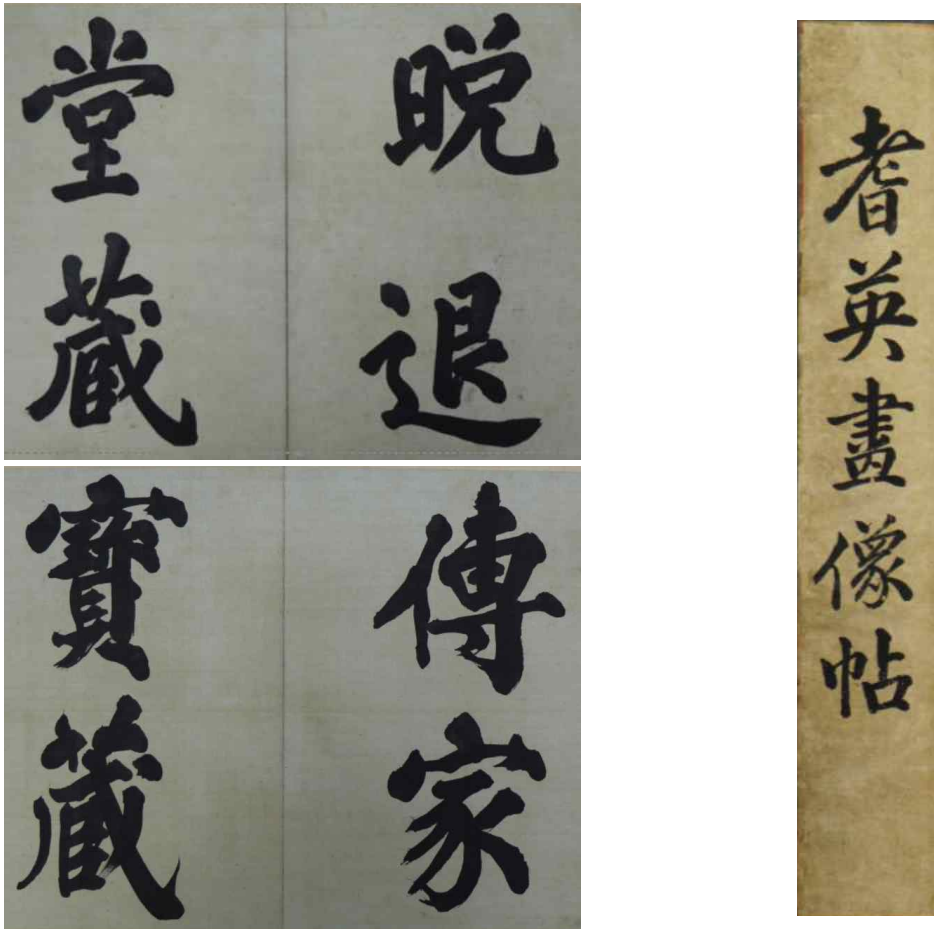 晩退
堂藏
傳家
寶藏
耆英畫像帖